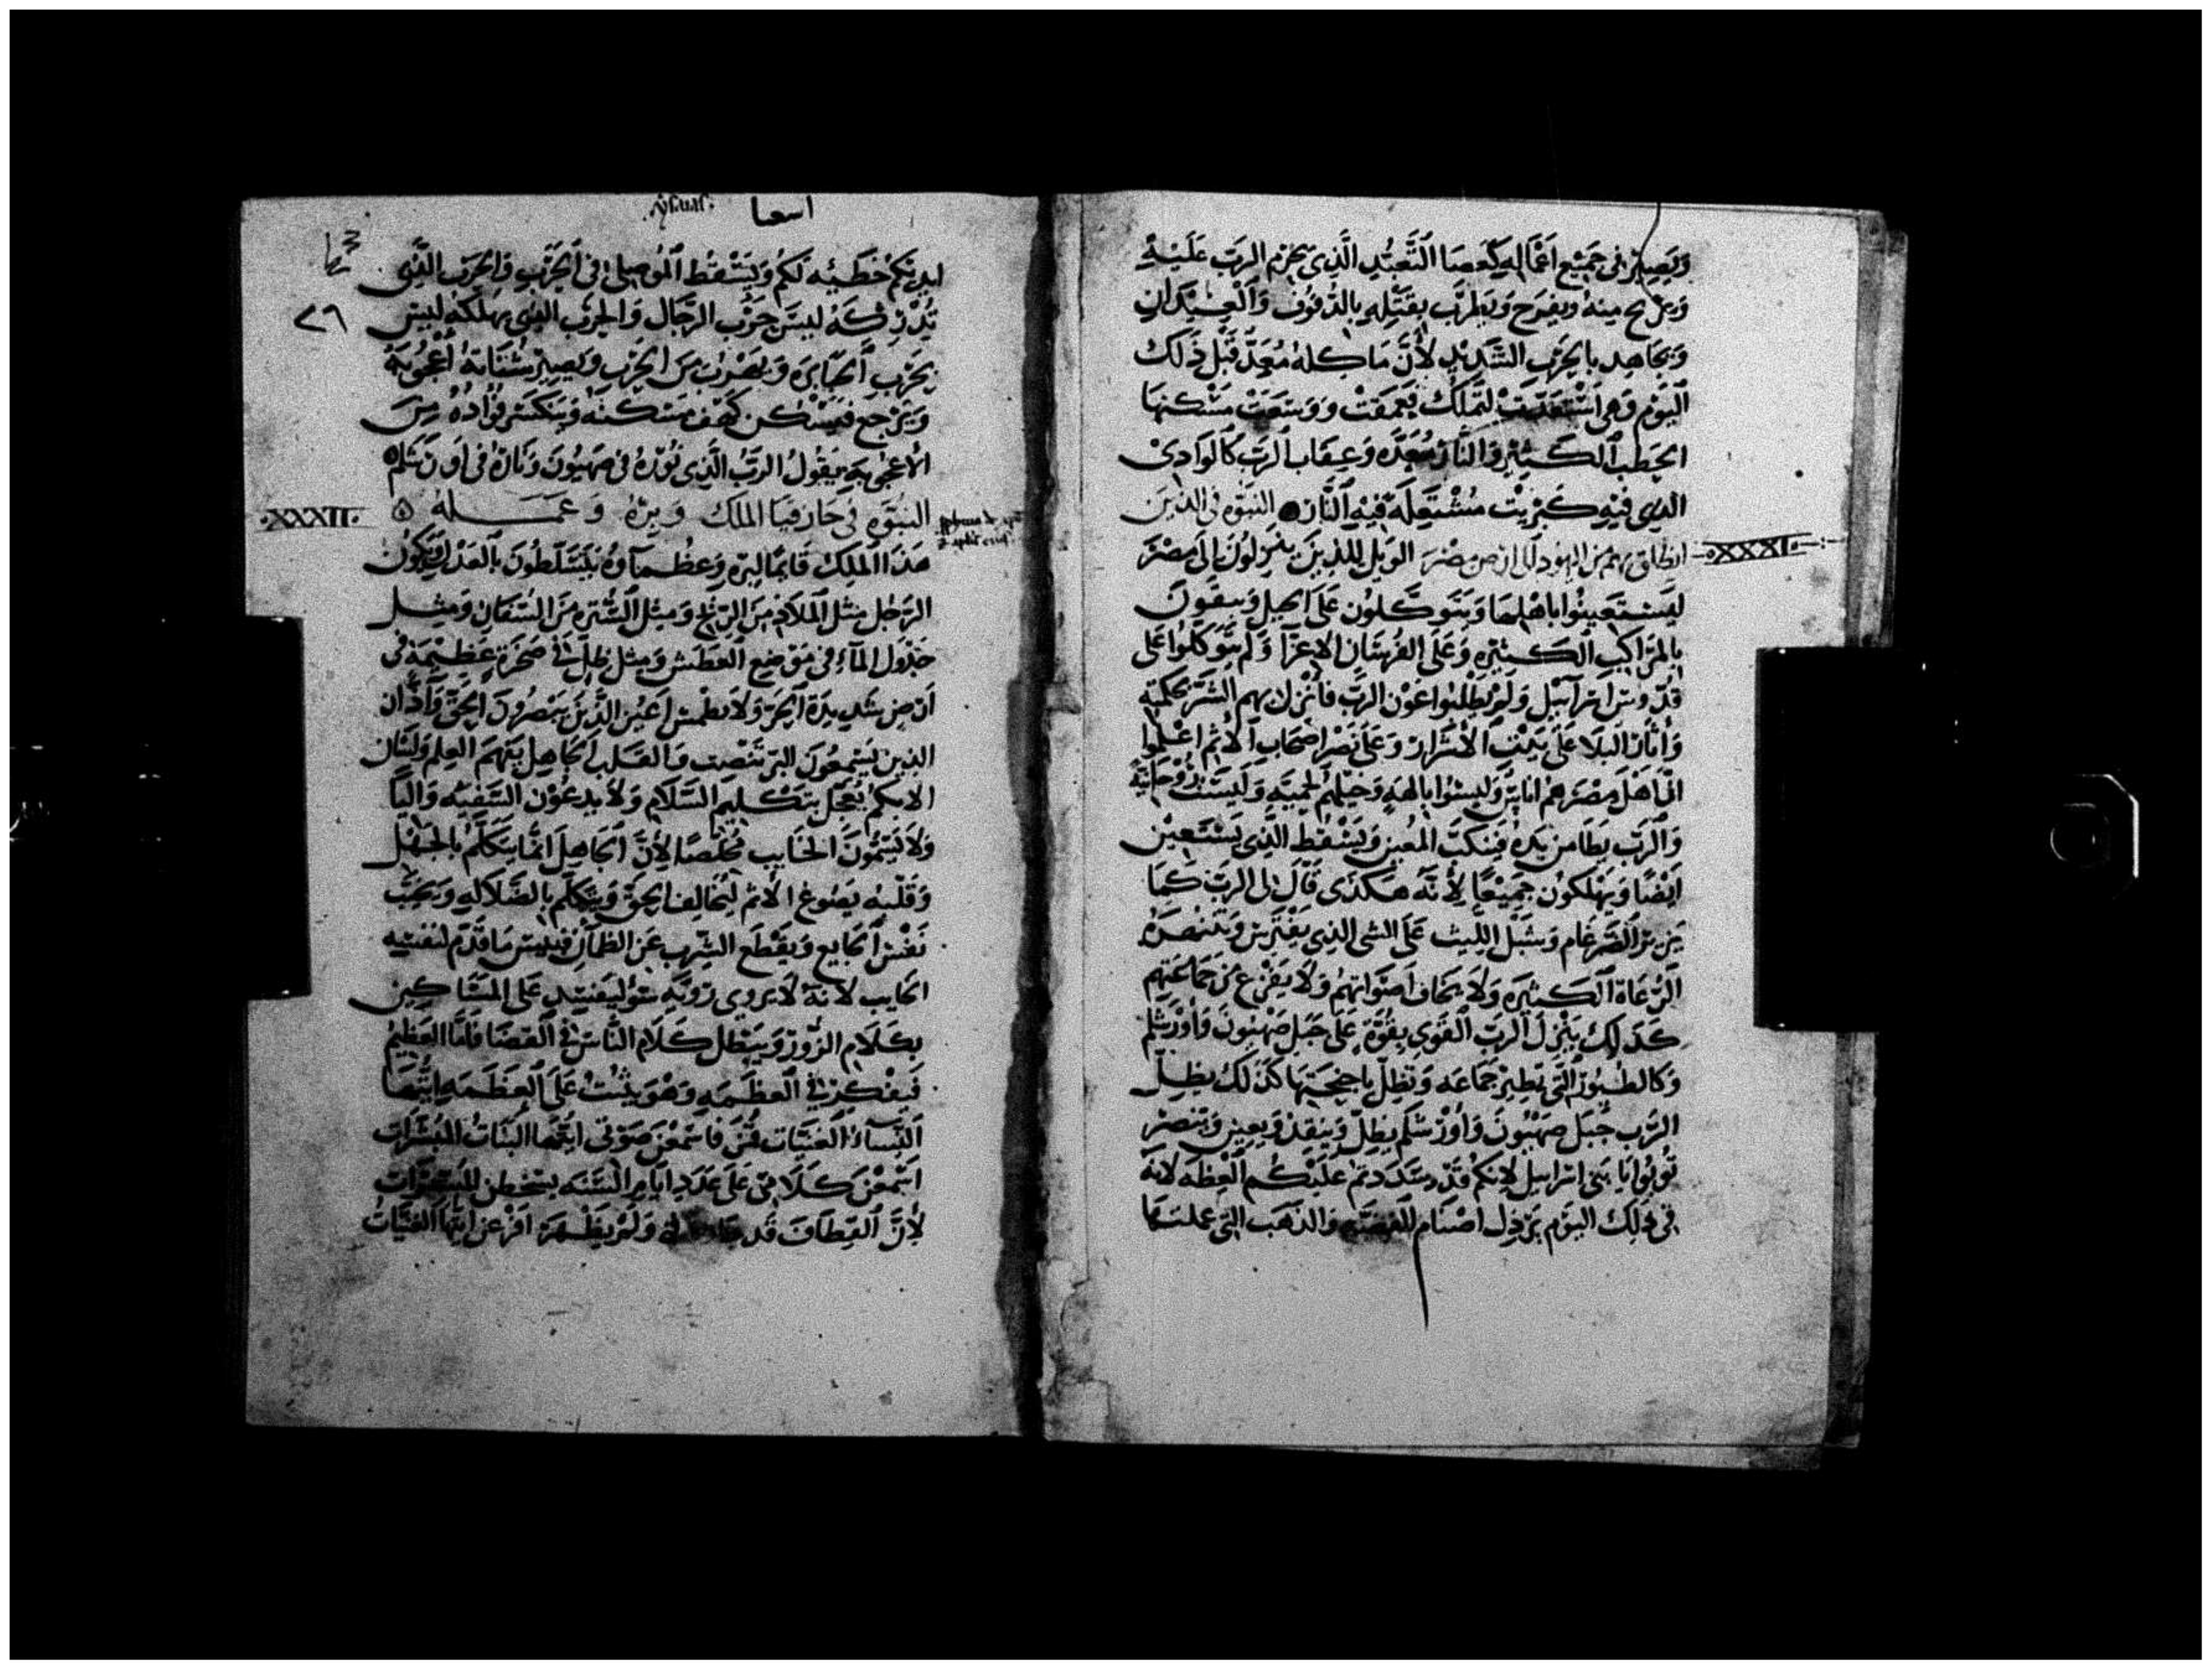 ويصير في جميع اعماله كعصا التعبد الذي يحزم الرب عليه
ويريح منه ويفرح ويطرب بقتله بالدفوف والعيدان
ويجاهد بالحرب الشديد لأن ماكله معد قبل ذلك
اليوم وهي استعدت لتملك فعمقت ووسعت مسكنها
الحطب الكثير والنار معده وعقاب الرب كالوادي
الذي فيه كبريت مشتعلة فيه النار النبوه في الذين
انطلق بهم من اليهود الى ارض مصر الويل للذين ينزلون الى مصر
·XXXI·
ليستعينوا باهلها ويتوكلون على الخيل ويثقون
بالمراكب الكثيره وعلى الفرسان الاعزآ ولم يتوكلوا على
قدوس اسرآئيل ولم يطلبوا عون الرب فأنزل بهم الشر بحكمته
وأثار البلا على بيت الأشرار وعلى نصر اصحاب الأثم اعلموا
ان اهل مصر هم اناس وليسوا بالهه وخيلهم لحميه وليست بروحانية
والرب يطا من يده فينكب المعين ويسقط الذي يستعين
ايضًا ويهلكون جميعًا لأنه هكذى قال لي الرب كما
يزير الضرغام وشبل الليث على الشي الذي يفترس وتنصره
الرعاة الكثيره ولا يخاف اصواتهم ولا يفزع من جماعتهم
كذلك ينزل الرب القوي بقوة على جبل صهيون واورشلم
وكالطيور التي تطير جماعه وتظل باجنحتها كذلك يظل
الرب جبل صهيون واورشلم يظل وينقذ ويعين وينصر
توبوا يا بني اسراييل لانكم قد شددتم عليكم العظه لانه
في ذلك اليوم يرذل اصنام الفضه والذهب التي عملتها
اسعيا
ysaias.
٧٩
ايديكم خطيئه لكم ويسقط الموصلي في الحرب والحرب الذي
تدركه ليس حرب الرجال والحرب الذي يهلكه ليس
بحرب الجبابره ويضرب من الحرب ويصير شبانه اعجوبة
ويرجع فيسكن كهف مسكنه وينكسر فؤاده من
الأعجوبه يقول الرب الذي نوره في صهيون وناره في اورشلم
النبوه في حازقيا الملك وبره وعمله ه
·XXXII·
هذا الملك قايمًا لبره وعظمآوه يتسلطون بالعدل ويكون
الرجل مثل الملاذ من الريح ومثل الستره من السفان ومثل
جدول المآء في موضع العطش ومثل ظل في صخرة عظيمه في
ارض شديدة الحر ولا يطمس اعين الذين يبصرون الحق وآذان
الذين يسمعون البر تنصت والقلب الجاهل يتهم العلم ولسان
الابكم يعجل بتكليم السلام ولا يدعون السفيه واليًا
ولا يسمون الخايب مخلصًا لأن الجاهل انما يتكلم بالجهل
وقلبه يصوغ الأثم ليخالف الحق ويتكلم بالضلاله ويخيب
نفس الجايع ويقطع الشرب عن الظمان فبيس ما قدم لنفسه
الخايب لأنه لا يروي رويه سوء ليفسد على المساكين
بكلام الزور ويبطل كلام الناس في القضا فأما العظيم
فيفكر في العظمه وهو يثبت على العظمه ايتها
النسآء الغنيات قمن فاسمعن صوتي ايتها البنات المبشرات
اسمعن كلامي على عدد ايام السنه يسخطن المبشرات
لأن القطاف قد ولم يظهر افزعن ايتها الغنيات